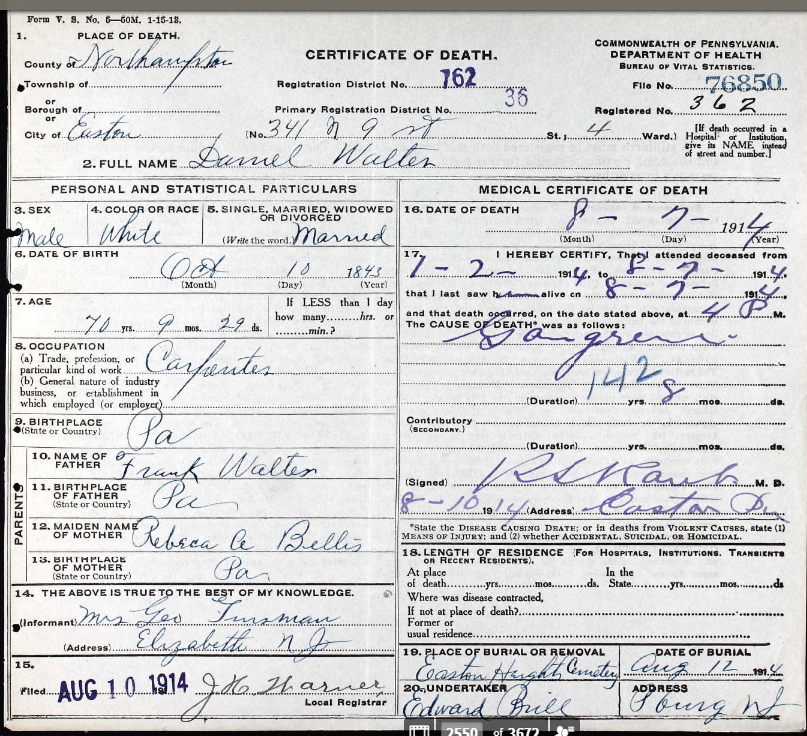 Form V. S. No. 5—50M. 1-15-13.
1. PLACE OF DEATH.
County of Northampton
Township of
or
Borough of
or
City of Easton
CERTIFICATE OF DEATH.
Registration District No. 762
Primary Registration District No. 36
(No. 341 N 9 st St.; 4 Ward.)
COMMONWEALTH OF PENNSYLVANIA.
DEPARTMENT OF HEALTH
BUREAU OF VITAL STATISTICS.
File No. 76850
Registered No. 362
[If death occurred in a Hospital or Institution, give its NAME instead of street and number.]
2. FULL NAME Daniel Walter
PERSONAL AND STATISTICAL PARTICULARS
3. SEX Male
4. COLOR OR RACE White
5. SINGLE, MARRIED, WIDOWED OR DIVORCED
(Write the word.) Married
6. DATE OF BIRTH
Oct 10 1843
(Month) (Day) (Year)
7. AGE
70 yrs. 9 mos. 29 ds.
If LESS than 1 day
how many........hrs. or
.........min.?
8. OCCUPATION
(a) Trade, profession, or
particular kind of work Carpenter
(b) General nature of industry
business, or establishment in
which employed (or employer)
9. BIRTHPLACE
(State or Country) Pa
PARENTS
10. NAME OF
FATHER Frank Walter
11. BIRTHPLACE
OF FATHER
(State or Country) Pa
12. MAIDEN NAME
OF MOTHER Rebeca A Bellis
13. BIRTHPLACE
OF MOTHER
(State or Country) Pa
14. THE ABOVE IS TRUE TO THE BEST OF MY KNOWLEDGE.
(Informant) Mrs Geo Tinsman
(Address) Elizabeth N J
15.
Filed AUG 10 1914 191 J H Warner
Local Registrar
MEDICAL CERTIFICATE OF DEATH
16. DATE OF DEATH
8 - 7 - 1914
(Month) (Day) (Year)
17. I HEREBY CERTIFY, That I attended deceased from
1-2- 1914. to 8-7- 1914.
that I last saw h alive on 8-7- 1914.
and that death occurred, on the date stated above, at 4 P M.
The CAUSE OF DEATH* was as follows:
Gangrene
142
(Duration) yrs. 8 mos. ds.
Contributory
(SECONDARY.)
(Duration) yrs. mos. ds.
(Signed) M. D.
8-10 1914 (Address) Easton Pa
*State the DISEASE CAUSING DEATH; or in deaths from VIOLENT CAUSES, state (1)
MEANS OF INJURY; and (2) whether ACCIDENTAL, SUICIDAL, OR HOMICIDAL.
18. LENGTH OF RESIDENCE (FOR HOSPITALS, INSTITUTIONS, TRANSIENTS
OR RECENT RESIDENTS).
At place In the
of death.......yrs.......mos.......ds. State.......yrs.......mos.......ds
Where was disease contracted,
If not at place of death?
Former or
usual residence
19. PLACE OF BURIAL OR REMOVAL
Easton Heights Cemetery
DATE OF BURIAL
Aug 12 1914
20. UNDERTAKER
Edward Brill
ADDRESS
2550 of 3672